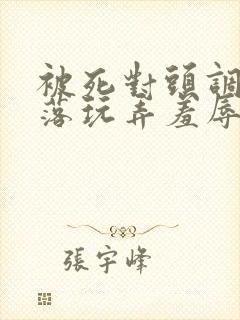 被死對頭調
落玩弄羞辱
張宇峰